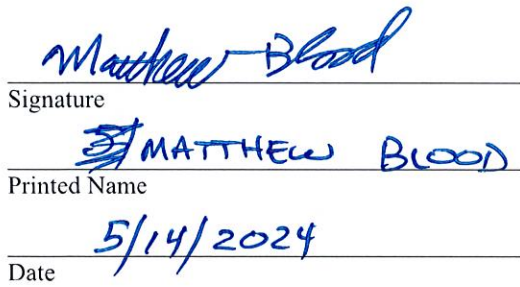 Matthew Blood
Signature
MATTHEW BLOOD
Printed Name
5/14/2024
Date